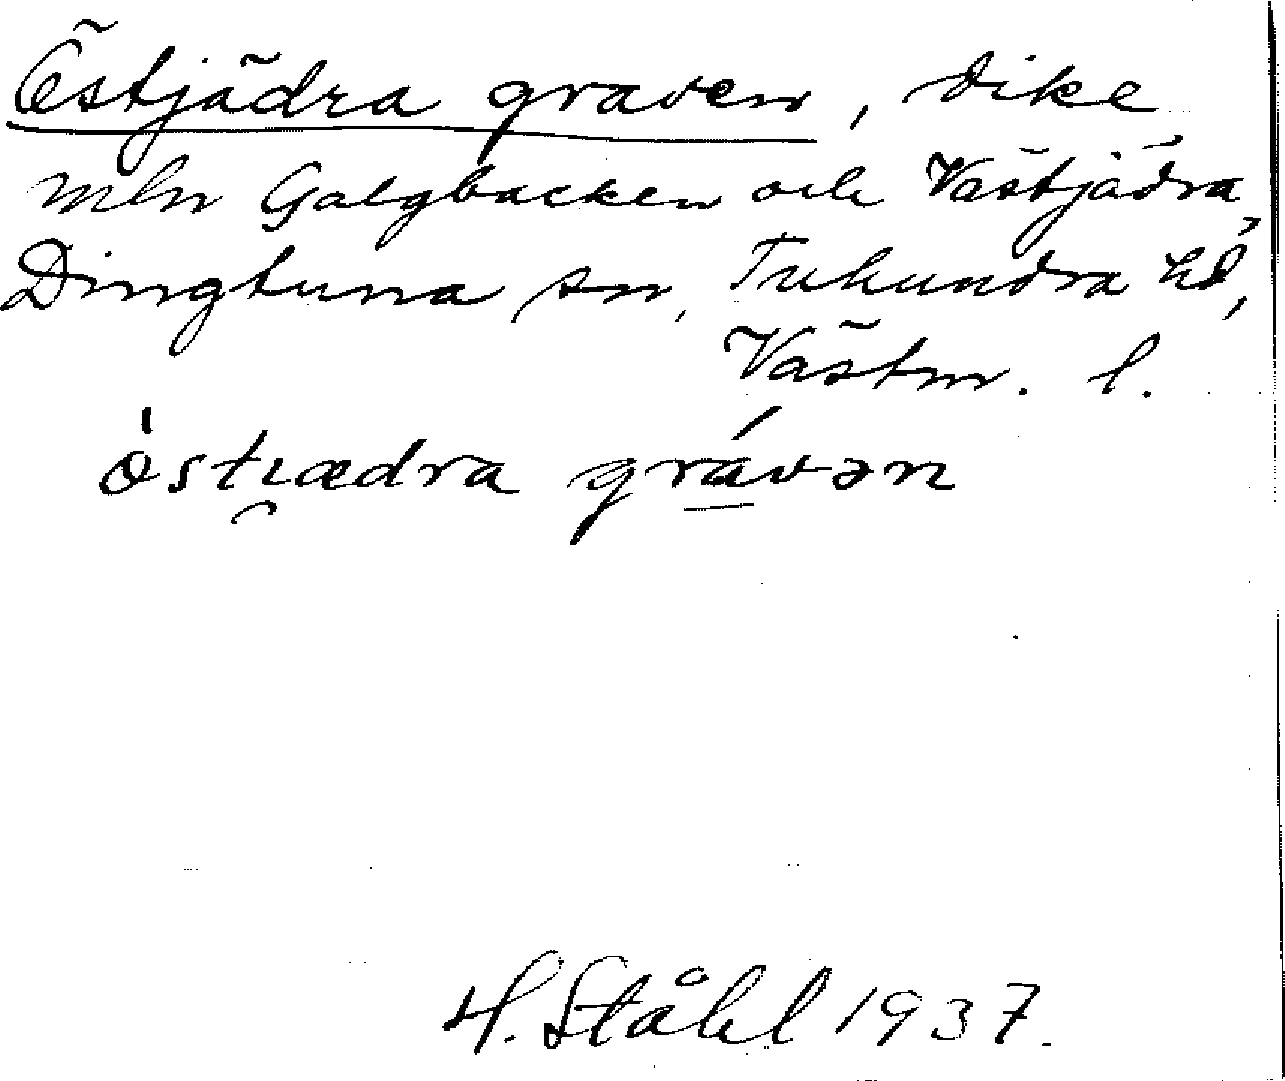 Östjädra graven, dike
mln Galgbacken och Västjädra,
Dingtuna sn, Tuhundra hd,
Västm. l.
östi̯ædra grávən
H. Ståhl 1937.